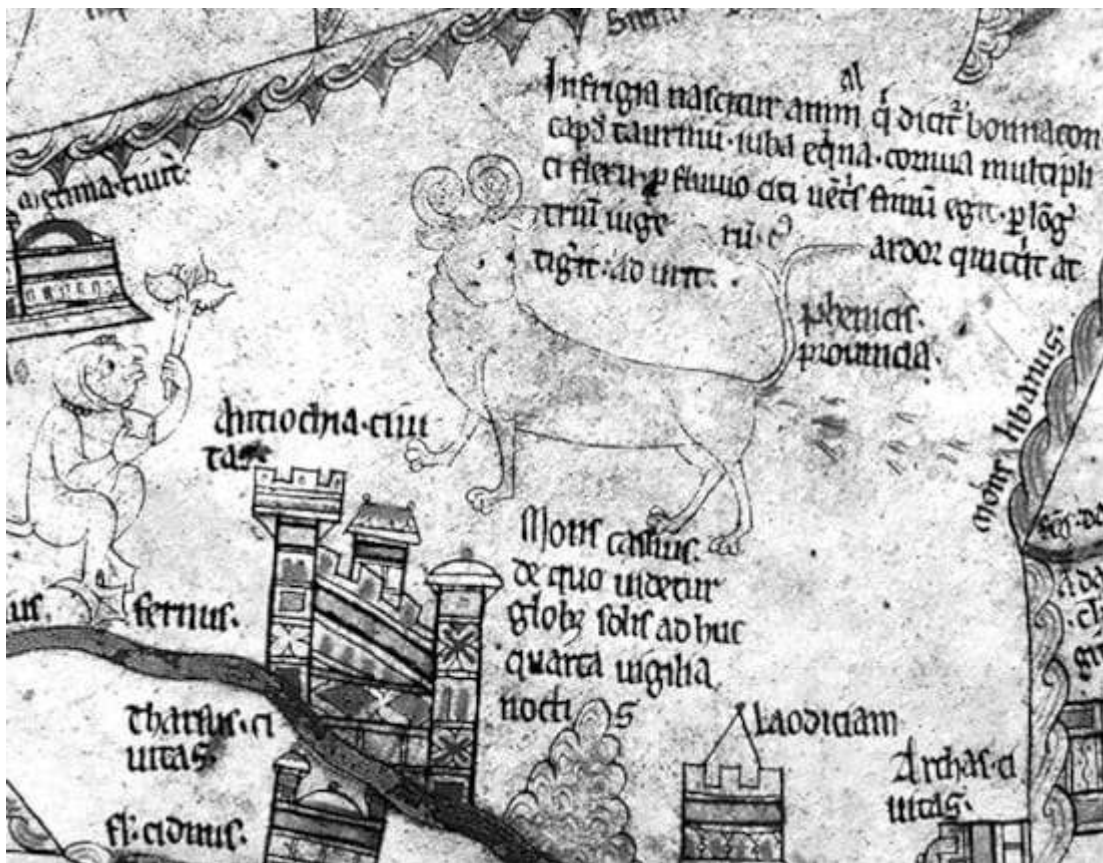 Infrigia nascitur anim al q̄ dicit᷑ bonnacon
capđ taurinū · iuba eqͥna · cornua multipli
ci flexu · ꝓ fluuio citi uēt͛s fimū egit · ꝑ lōgꝰ
triū iuge rū · cꝰ ardor quicqͥt at
tigᷓit · ad urit ·
phenicis ·
prouincia ·
mons libanus ·
Antiochia · ciui
tas
Mons cassius ·
de quo uidetur
globꝫ solis ad huc
quarta uigilia
noctis
fernus ·
us ·
Tharsus · ci
uitas ·
fl · cidnus ·
Laodiciam
Archas · ci
uitas ·